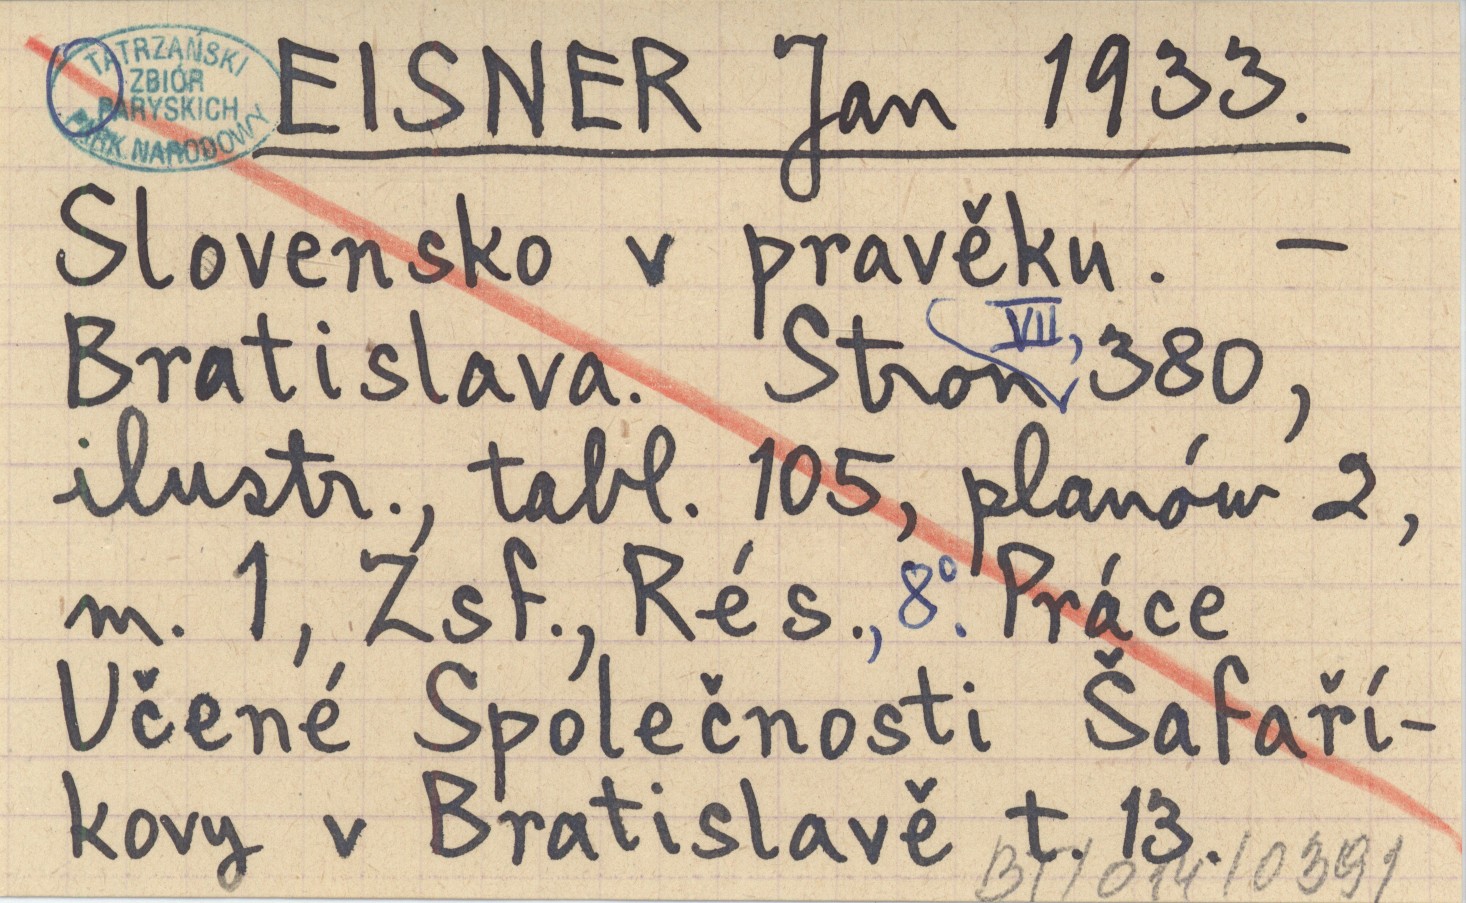 TATRZAŃSKI
ZBIÓR
PARYSKICH
PARK NARODOWY
EISNER Jan 1933.
Slovensko v pravěku. –
Bratislava. Stron VII, 380,
ilustr., tabl. 105, planów 2,
m. 1, Zsf., Rés., 8°. Práce
Učené Společnosti Šafaří-
kovy v Bratislavě t. 13.
BT/014/0391